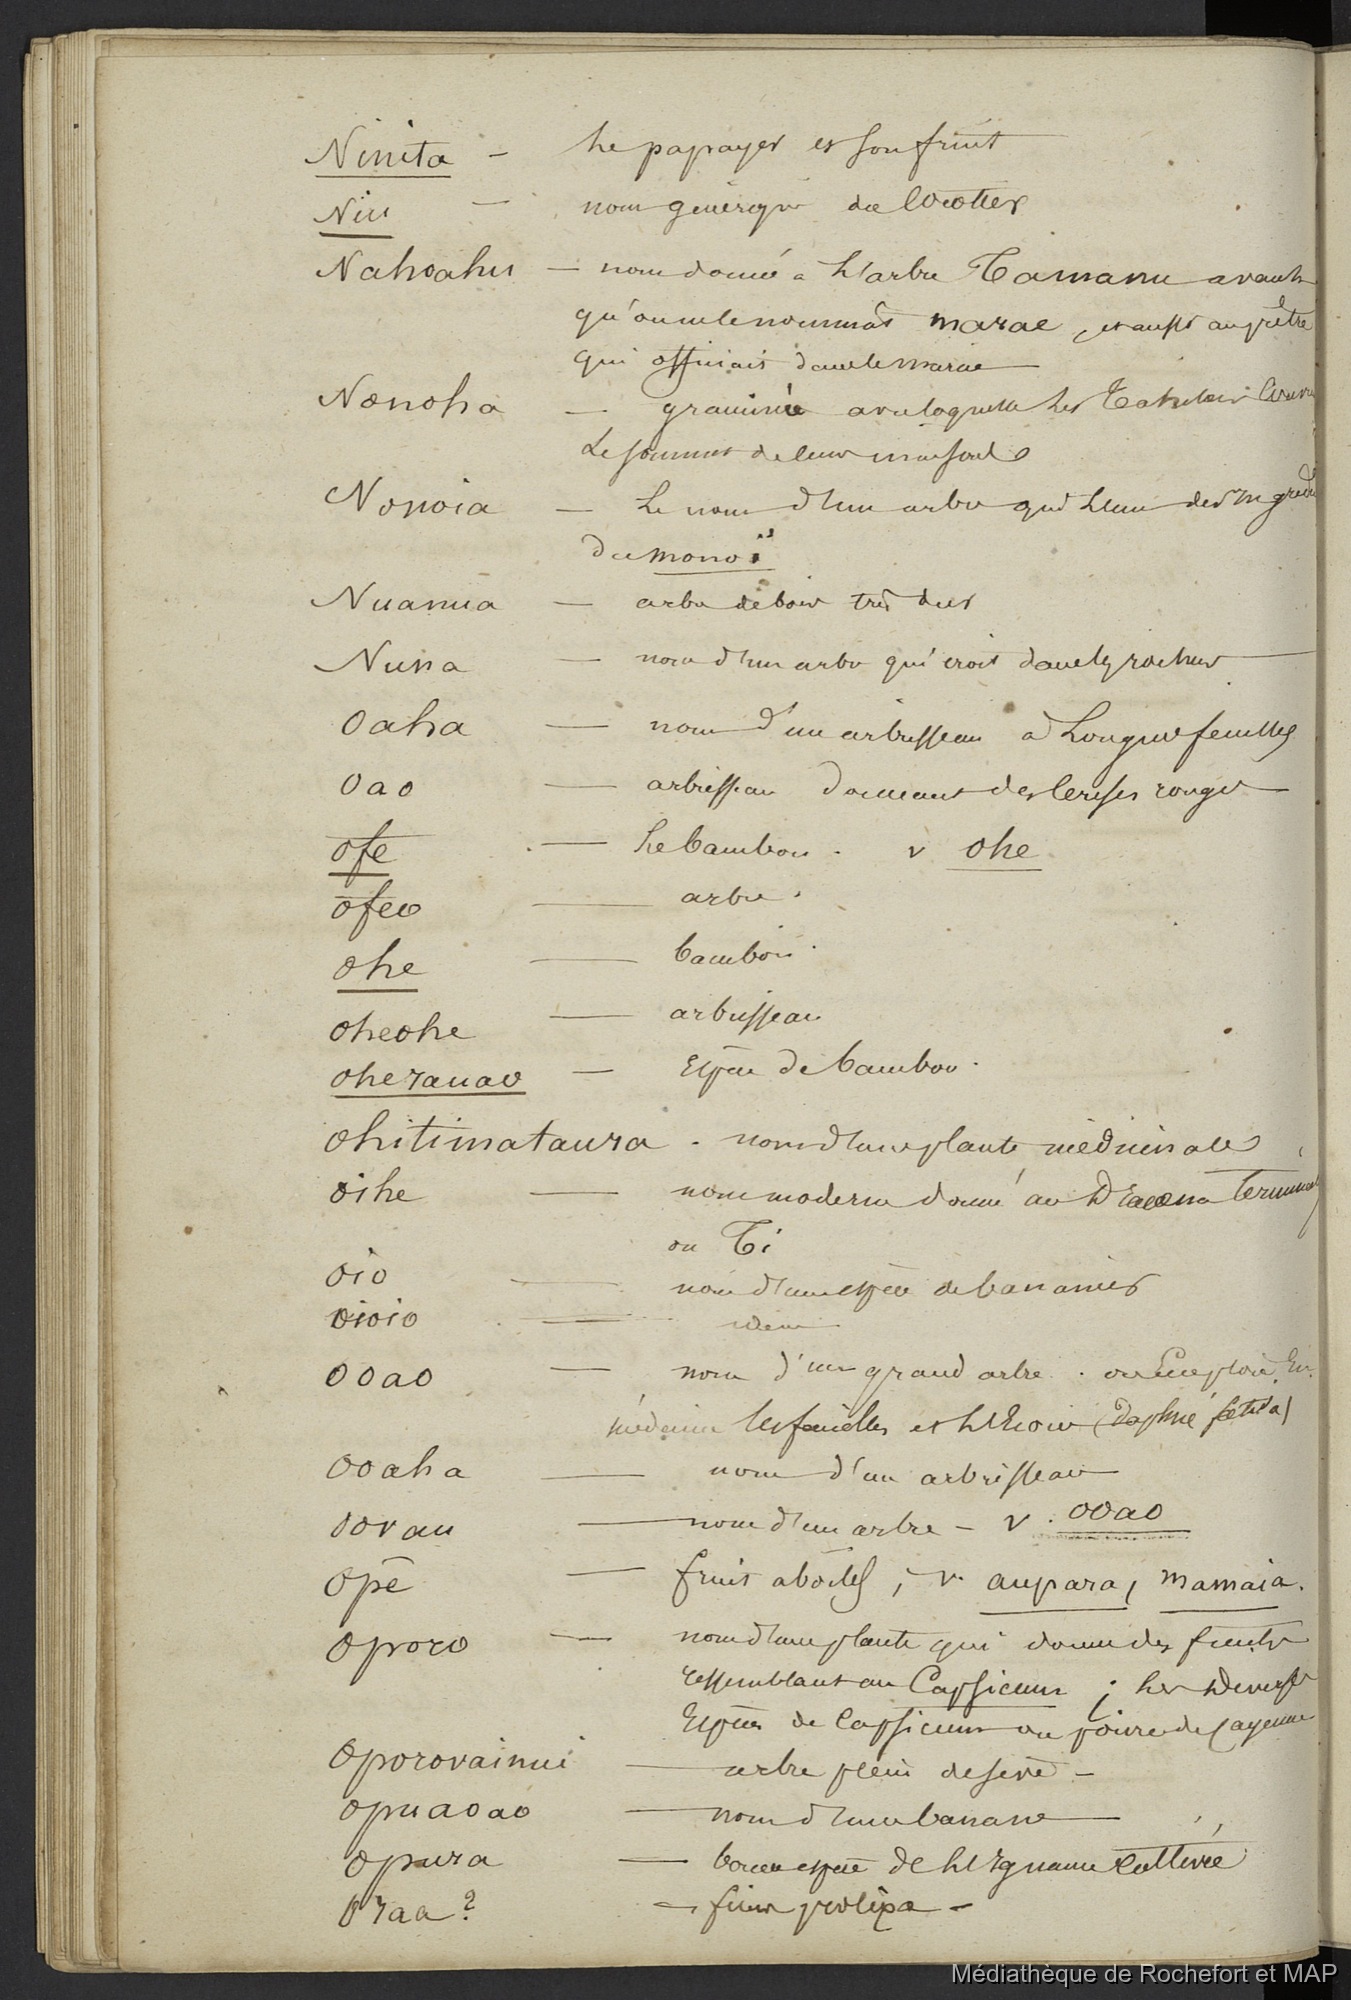 Ninita - Le papayer et son fruit
Niu - nom générique du Cocotier
Nahoahu - nom donné à L'arbre Tamanu avant
qu'on ne le nommât marae, et aussi au prêtre
qui officiait dans le marae
Nonoha - graminée avec laquelle Les Tahitiens
Le sommet de leurs maisons
Nonoia - Le nom d'un arbre qui L'un des
du monoi
Nuanua - arbre de bois très dur
Nuna - nom d'un arbre qui croit dans les rochers
Oaha - nom d'un arbrisseau à Longues feuilles
Oao - arbrisseau donnant des Cerises rouges
ofe - Le bambou. v ohe
ofeo - arbre.
ohe - bambou.
oheohe - arbrisseau
oheranao - Espèce de bambou.
ohitimataura - nom d'une plante médicinale
oihe - nom moderne donné au Dracoena
ou Ti
oio - nom d'une espèce de bananier
oioio - idem
ooao - nom d'un grand arbre. on Emploie, En
médecine les feuilles et L'Ecorce (Daphné fœtida)
ooaha - nom d'un arbrisseau
oovau - nom d'un arbre - v. ooao
opē - fruit abortif; v. aupara, mamaia.
oporo - nom d'une plante qui donne des fruits
ressemblant au Capsicum; Les Diverses
Espèces de Capsicum ou poivre de Cayenne
Oporovainui - arbre plein de sève -
opuaoao - nom d'une banane
opura - bonne espèce de L'Igname Cultivée
Oraa? - ficus prolixa -
Médiathèque de Rochefort et MAP